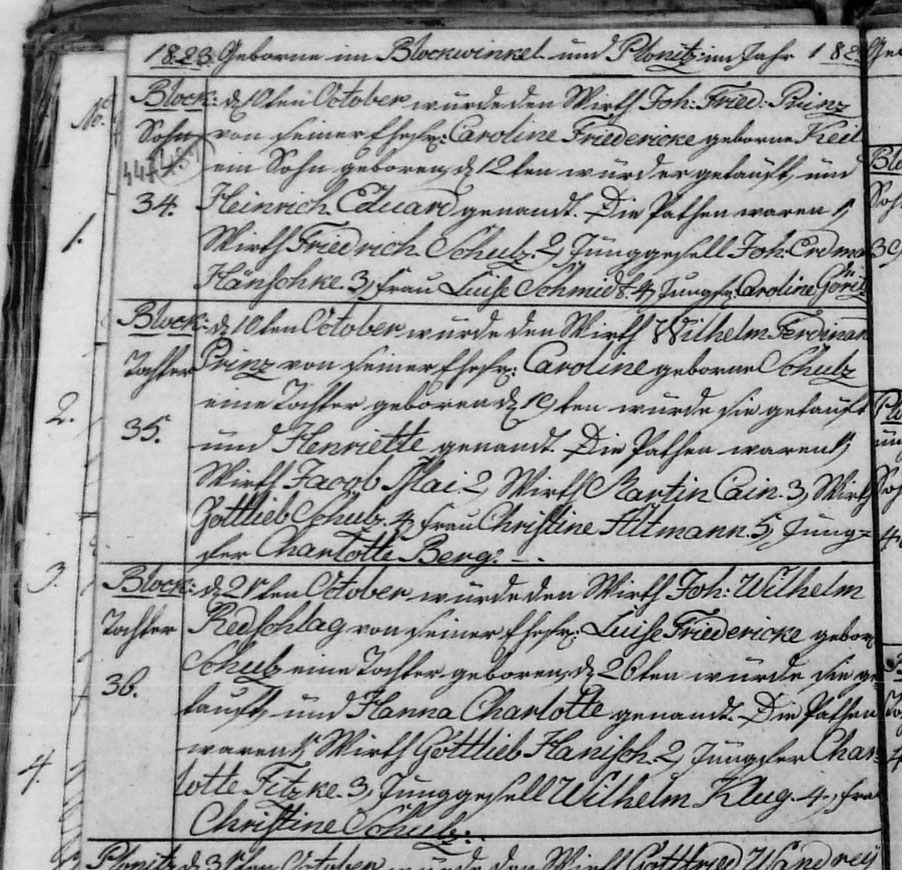 1823. Geborne im Blockwinkel und Plonitz im Jahr 182
No.
Block: d. 10ten October wurde den Wirth Joh: Fried: Prinz
Sohn von seiner Ehefr: Caroline Friedericke geborne Keil
ein Sohn geboren, d. 12ten wurde er getauft, und
34. Heinrich Eduard genandt. Die Pathen waren 1,
1. Wirth Friedrich Schulz. 2, Junggesell Joh: Erdman
Hänschke. 3, Frau Luise Schmidt. 4, Jungfr: Caroline Göritz
Block: d. 10ten October wurde den Wirth Wilhelm Ferdinan
Tochter Prinz von seiner Ehefr: Caroline geborne Schulz
2. eine Tochter geboren d. 19ten wurde sie getauft
35. und Henriette genandt. Die Pathen waren 1,
Wirth Jacob Mai. 2, Wirth Martin Cain. 3, Wirth
Gottlieb Schulz. 4, Frau Christine Altmann. 5, Jung=
fer Charlotte Berg.
3. Block: d. 21ten October wurde den Wirth Joh: Wilhelm
Tochter Redschlag von seiner Ehefr: Luise Friedericke gebor
Schulz eine Tochter geboren, d. 26ten wurde sie ge
36. tauft, und Hanna Charlotte genandt. Die Pathen
waren 1, Wirth Gottlieb Hanisch. 2, Jungfer Char=
4. lotte Fitzke. 3, Junggesell Wilhelm Klug. 4, Frau
Christine Schulz.
Plonitz d. 31ten October wurde den Wirth Gottfried Wandrey